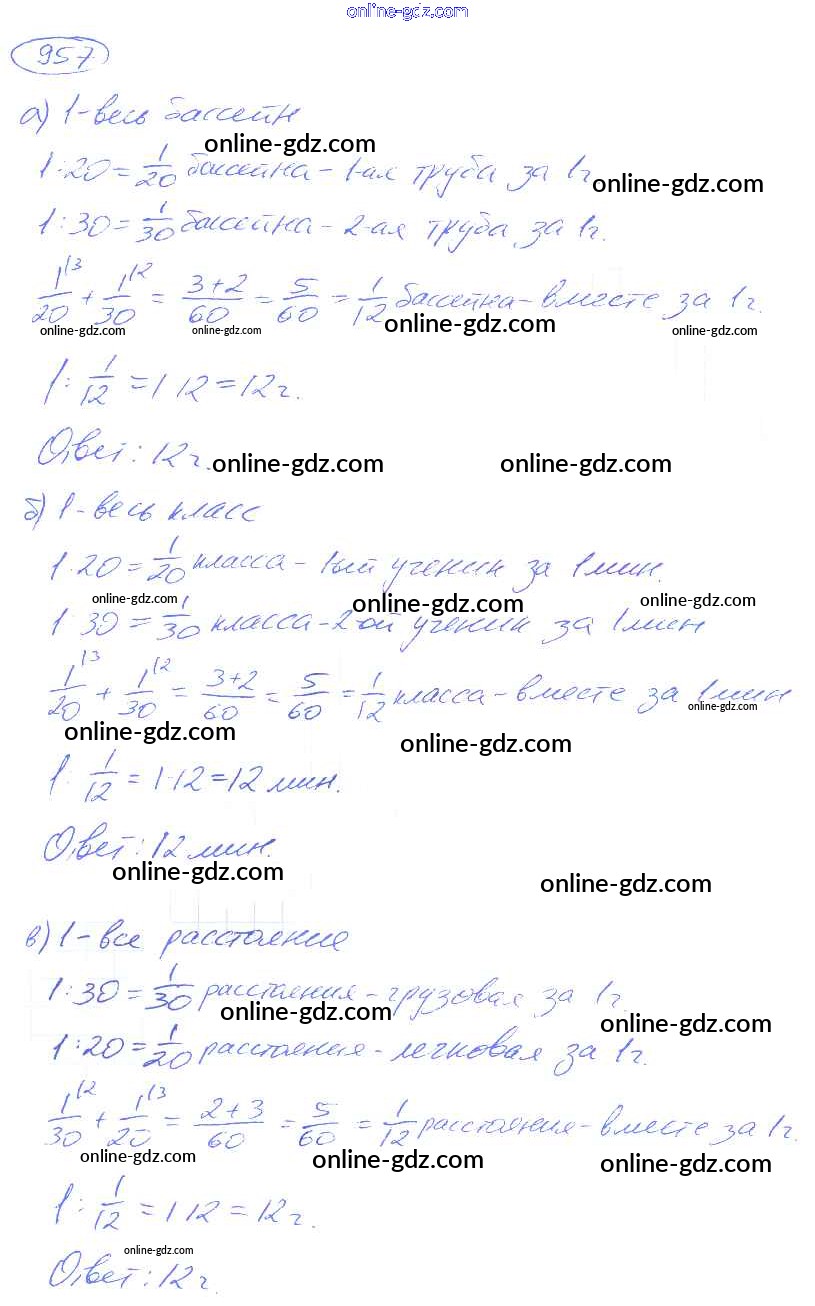 online-gdz.com
957
а) 1 - весь бассейн
online-gdz.com
1:20 = 1/20 бассейна - 1-ая труба за 1ч
online-gdz.com
1:30 = 1/30 бассейна - 2-ая труба за 1ч.
1/20 \3 + 1/30 \2 = 3+2/60 = 5/60 = 1/12 бассейна - вместе за 1ч.
online-gdz.com online-gdz.com online-gdz.com online-gdz.com
1 : 1/12 = 1·12 = 12ч.
Ответ: 12ч.
online-gdz.com online-gdz.com
б) 1 - весь класс
1:20 = 1/20 класса - 1ый ученик за 1мин.
online-gdz.com online-gdz.com online-gdz.com
1:30 = 1/30 класса - 2-ой ученик за 1мин
1/20 \3 + 1/30 \2 = 3+2/60 = 5/60 = 1/12 класса - вместе за 1мин
online-gdz.com
online-gdz.com online-gdz.com
1 : 1/12 = 1·12 = 12 мин.
Ответ: 12 мин.
online-gdz.com online-gdz.com
в) 1 - все расстояние
1:30 = 1/30 расстояния - грузовая за 1ч.
online-gdz.com online-gdz.com
1:20 = 1/20 расстояния - легковая за 1ч.
1/30 \2 + 1/20 \3 = 2+3/60 = 5/60 = 1/12 расстояния - вместе за 1ч.
online-gdz.com online-gdz.com online-gdz.com
1 : 1/12 = 1·12 = 12ч.
online-gdz.com
Ответ: 12ч.